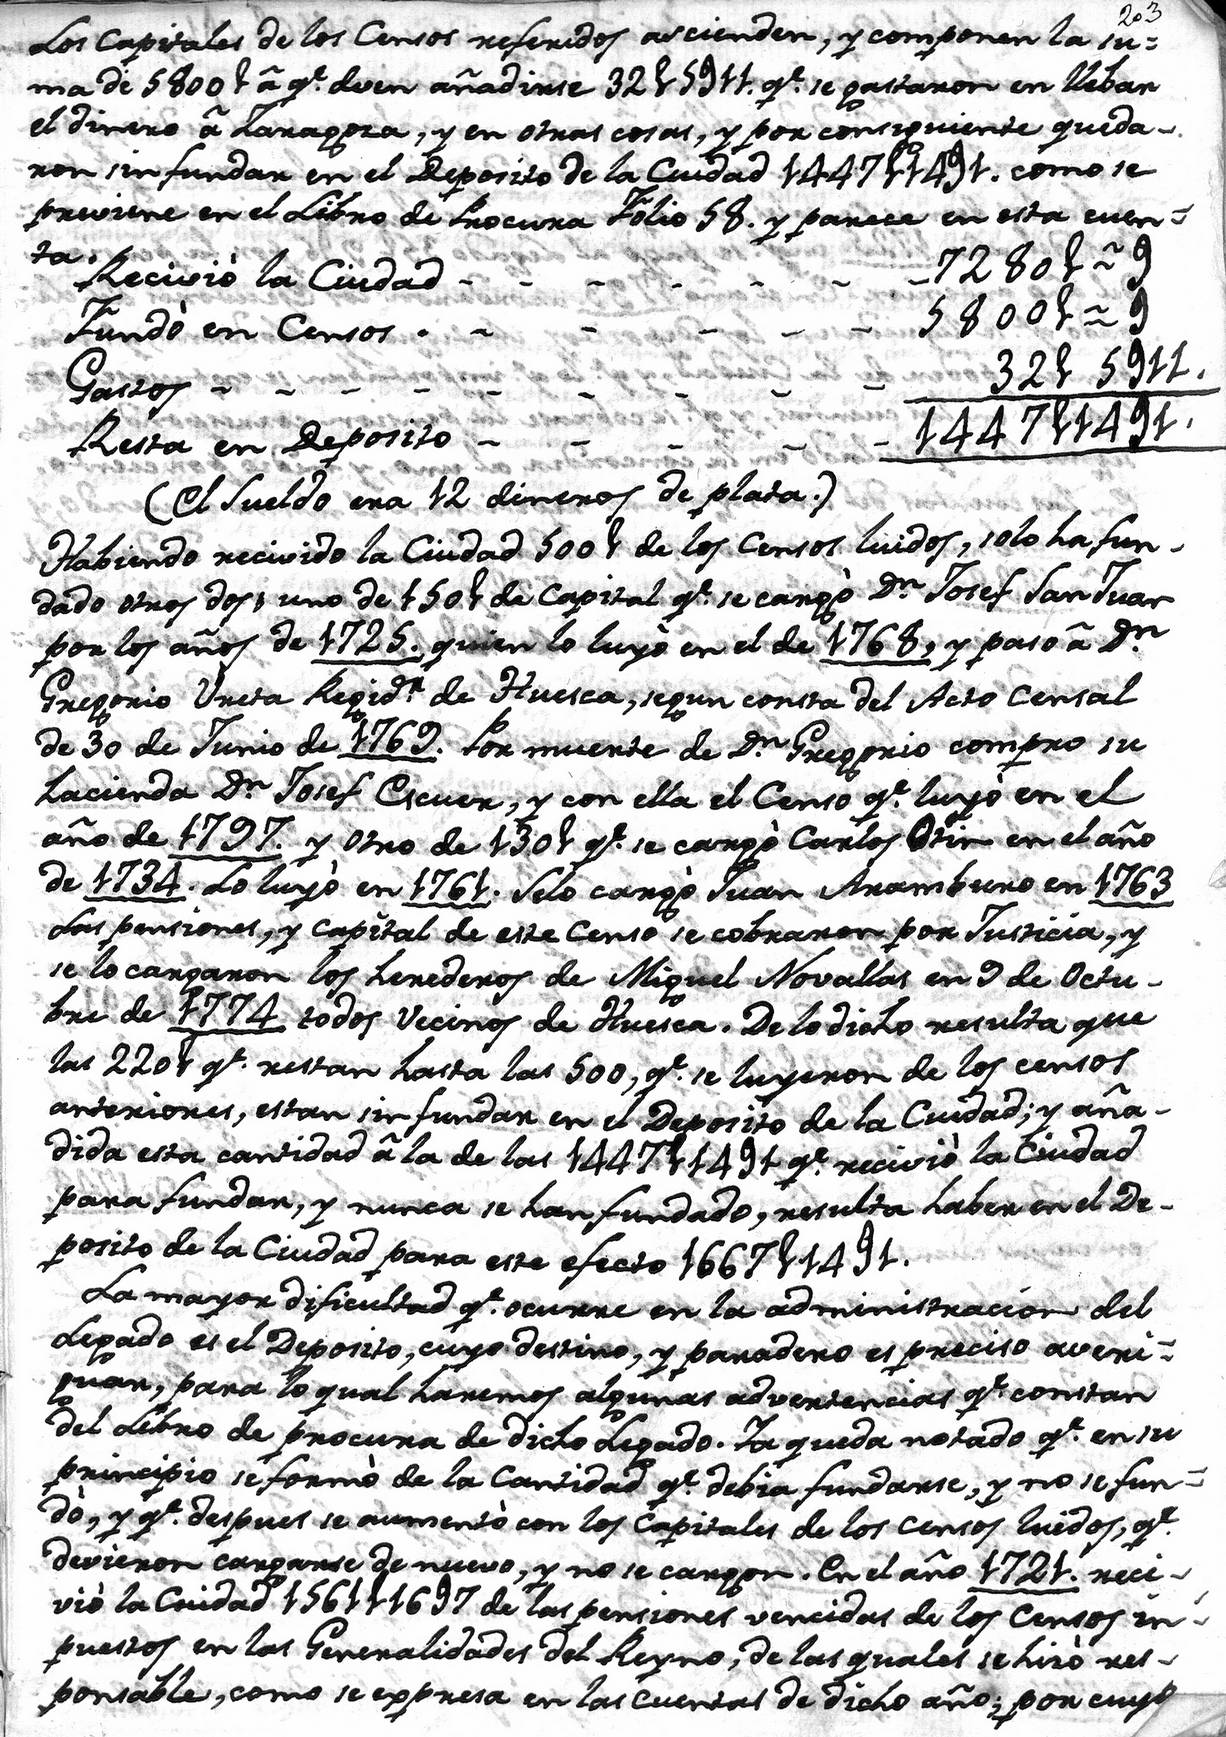 203
Los Capitales de los Censos referidos ascienden, y componen la su=
ma de 5800 ₶ â qᵉ. deven añadirse 32 ₶ 5911. qᵉ. se gastaron en llebar
el dinero â Zaragoza, y en otras cosas, y por consiguiente queda-
ron sin fundar en el Deposito de la Ciudad 1447 ₶ 1491. como se
previene en el Libro de Procura Folio 58. y parece en esta cuen=
ta.
Recivió la Ciudad - - - - - - - 7280 ₶ ~ 9
Fundò en Censos . - - - - - 5800 ₶ ≈ 9
Gastos - - - - - - - - - 32 ₶ 5911.
Resta en Deposito - - - - - 1447 ₶ 1491.
(El Sueldo era 12 dineros de plata.)
Habiendo recivido la Ciudad 500 ₶ de los Censos luidos, solo ha fun-
dado otros dos, uno de 150 ₶ de Capital qᵉ. se cargò Dⁿ Josef San Juan
por los años de 1725. quien lo luyò en el de 1768, y paso â Dⁿ
Gregorio Ureta Regidʳ de Huesca, segun consta del Acto Censal
de 30 de Junio de 1769. Por muerte de Dⁿ Gregorio compro su
hacienda Dⁿ Josef Escuer, y con ella el Censo qᵉ. luyò en el
año de 1797. y otro de 130 ₶ qᵉ. se cargò Carlos Otin en el año
de 1734. Lo luyò en 1761. Selo cargò Juan Aramburo en 1763
Las pensiones, y Capital de este Censo se cobraron por Justicia, y
se lo cargaron los herederos de Miguel Novallas en 9 de Octu-
bre de 1774 todos Vecinos de Huesca. De lo dicho resulta que
las 220 ₶ qᵉ. restan hasta las 500, qᵉ. se luyeron de los censos
anteriores, estan sin fundar en el Deposito de la Ciudad; y aña-
dida esta cantidad â la de las 1447 ₶ 1491 qᵉ. recivió la Ciudad
para fundar, y nunca se han fundado, resulta haber en el De-
posito de la Ciudad para este efecto 1667 ₶ 1491.
La mayor dificultad qᵉ. ocurre en la administracion del
Legado es el Deposito, cuyo destino, y paradero es preciso averi=
guar, para lo qual haremos algunas advertencias qᵉ. constan
del Libro de procura de dicho Legado. Ya queda notado qᵉ. en su
principio se formò de la Cantidad qᵉ. debia fundarse, y no se fun=
dò, y qᵉ. despues se aumentò con los Capitales de los censos luidos, qᵉ.
devieron cargarse de nuevo, y no se cargon. En el año 1721. reci-
viò la Ciudad 1561 ₶ 1697 de las pensiones vencidas de los Censos in-
puestos en las Generalidades del Reyno, de las quales se hizò res-
ponsable, como se expresa en las Cuentas de dicho año; por cuyo